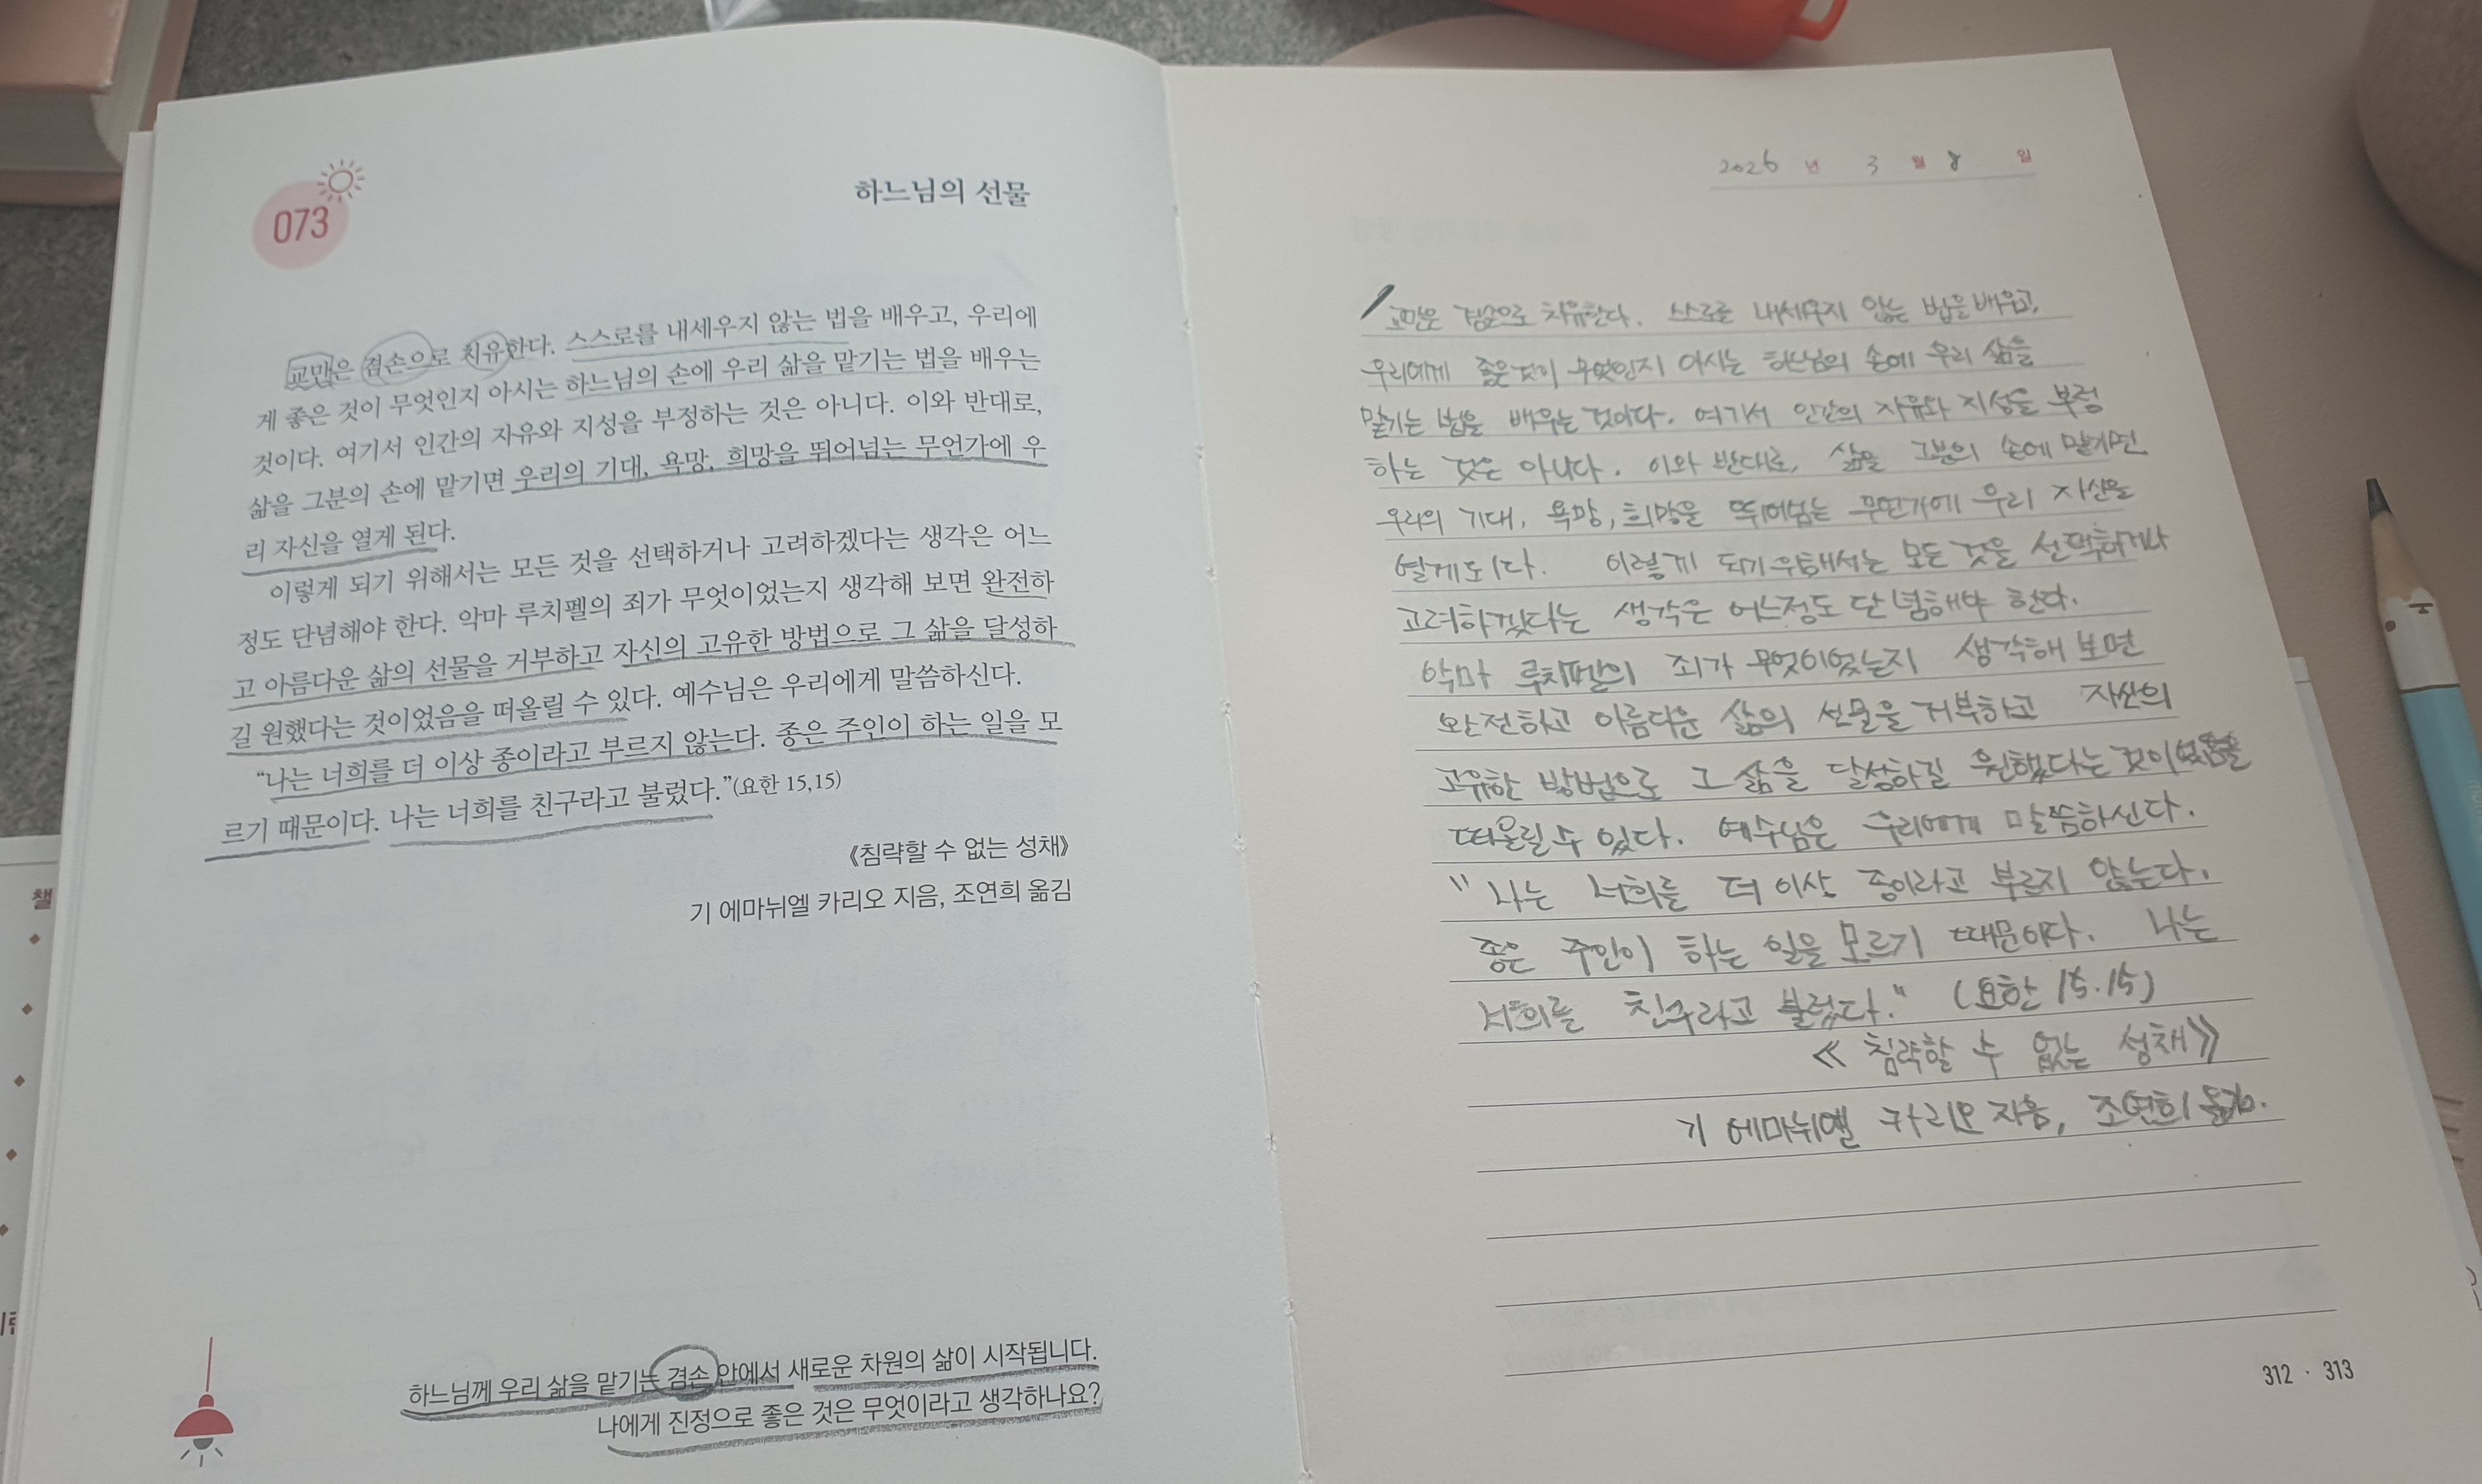 073
하느님의 선물
교만은 겸손으로 치유한다. 스스로를 내세우지 않는 법을 배우고, 우리에
게 좋은 것이 무엇인지 아시는 하느님의 손에 우리 삶을 맡기는 법을 배우는
것이다. 여기서 인간의 자유와 지성을 부정하는 것은 아니다. 이와 반대로,
삶을 그분의 손에 맡기면 우리의 기대, 욕망, 희망을 뛰어넘는 무언가에 우
리 자신을 열게 된다.
이렇게 되기 위해서는 모든 것을 선택하거나 고려하겠다는 생각은 어느
정도 단념해야 한다. 악마 루치펠의 죄가 무엇이었는지 생각해 보면 완전하
고 아름다운 삶의 선물을 거부하고 자신의 고유한 방법으로 그 삶을 달성하
길 원했다는 것이었음을 떠올릴 수 있다. 예수님은 우리에게 말씀하신다.
“나는 너희를 더 이상 종이라고 부르지 않는다. 종은 주인이 하는 일을 모
르기 때문이다. 나는 너희를 친구라고 불렀다.”(요한 15,15)
《침략할 수 없는 성채》
기 에마뉘엘 카리오 지음, 조연희 옮김
하느님께 우리 삶을 맡기는 겸손 안에서 새로운 차원의 삶이 시작됩니다.
나에게 진정으로 좋은 것은 무엇이라고 생각하나요?
2026 년 3 월 8 일
교만은 겸손으로 치유한다. 스스로를 내세우지 않는 법을 배우고,
우리에게 좋은 것이 무엇인지 아시는 하느님의 손에 우리 삶을
맡기는 법을 배우는 것이다. 여기서 인간의 자유와 지성을 부정
하는 것은 아니다. 이와 반대로, 삶을 그분의 손에 맡기면
우리의 기대, 욕망, 희망을 뛰어넘는 무언가에 우리 자신을
열게 된다. 이렇게 되기 위해서는 모든 것을 선택하거나
고려하겠다는 생각은 어느정도 단념해야 한다.
악마 루치펠의 죄가 무엇이었는지 생각해 보면
완전하고 아름다운 삶의 선물을 거부하고 자신의
고유한 방법으로 그 삶을 달성하길 원했다는 것이었음을
떠올릴 수 있다. 예수님은 우리에게 말씀하신다.
"나는 너희를 더 이상 종이라고 부르지 않는다.
종은 주인이 하는 일을 모르기 때문이다. 나는
너희를 친구라고 불렀다." (요한 15.15)
《침략할 수 없는 성채》
기 에마뉘엘 카리오 지음, 조연희 옮김.
312 · 313
챌